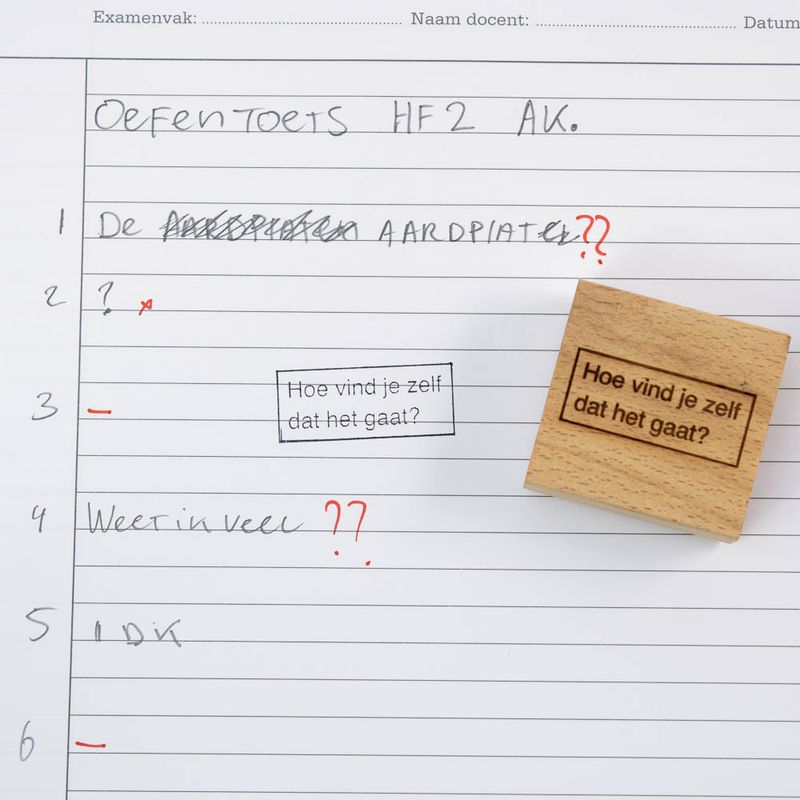 Examenvak: ........ Naam docent: ........ Datum
OEFENTOETS HF2 AK.
1 De AARDPLATEN??
2 ? x
3 –
Hoe vind je zelf
dat het gaat?
Hoe vind je zelf
dat het gaat?
4 Weet ik veel ??
5 IDK
6 –